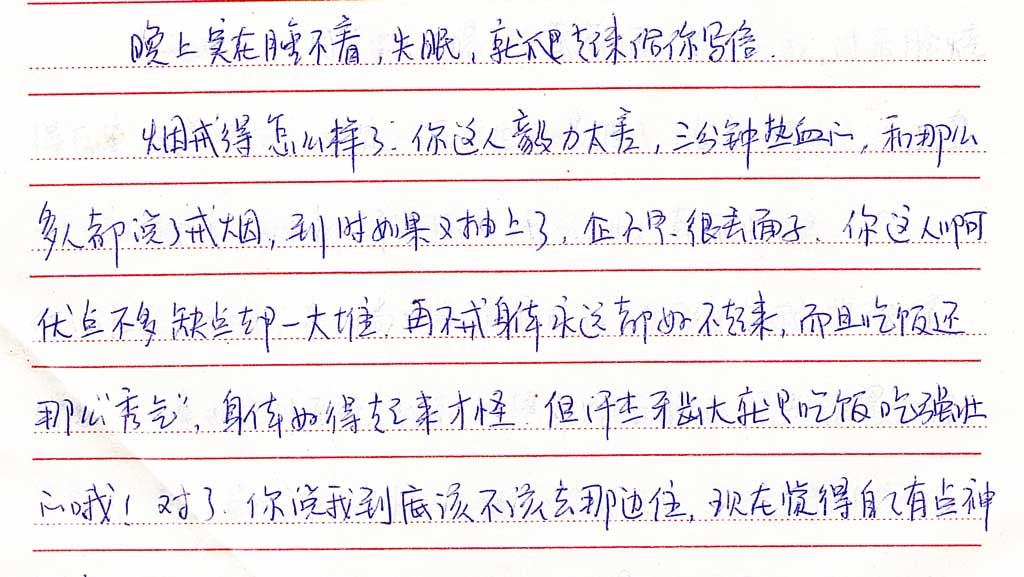 晚上实在睡不着,失眠,就爬起来给你写信.
烟戒得怎么样了.你这人毅力太差,三分钟热血心,和那么
多人都说了戒烟,到时如果又抽上了,岂不是很丢面子.你这人啊
优点不多缺点却一大堆.再不戒身体永远都好不起来,而且吃饭还
那么“秀气”,身体好得起来才怪.但牙齿大就是吃饭吃强壮
心哦!对了.你说我到底该不该去那边住,现在觉得自己有点神